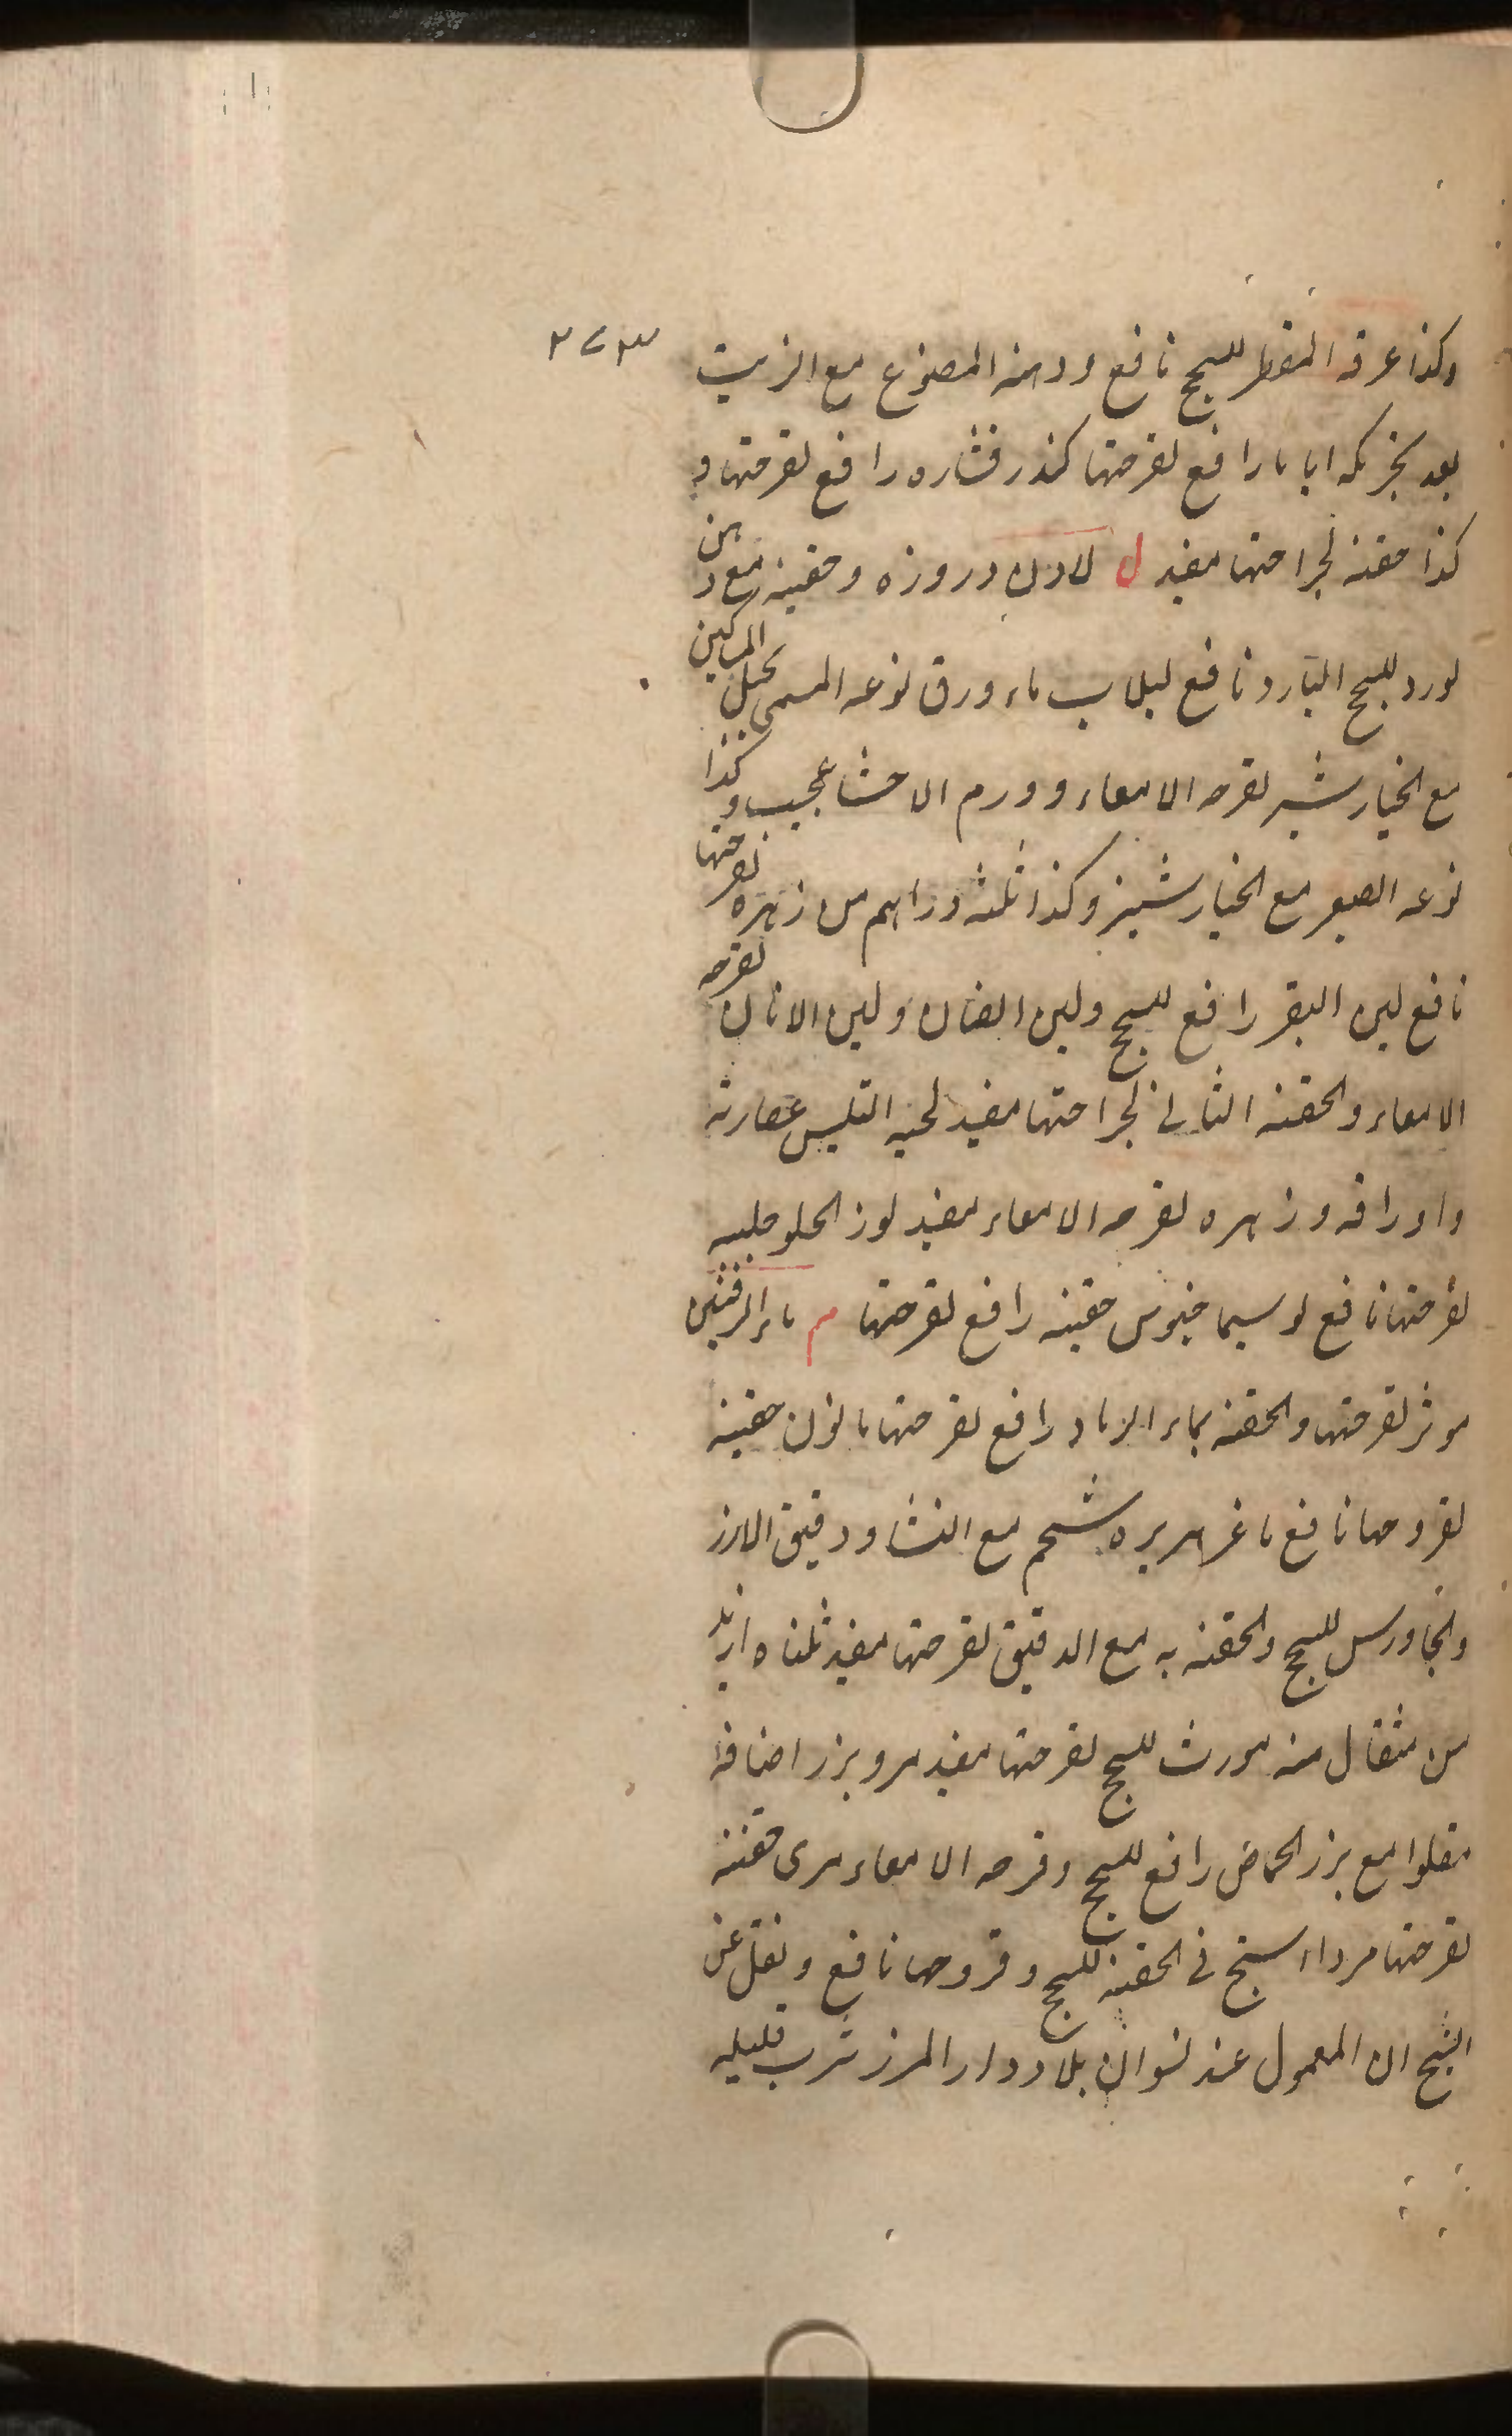 وكذا عرقه المقطر للسحج نافع ودهنه المصنوع مع الزيت ٢٧٣
بعد تحريكه اياما رافع لقرحتها كندر قشاره رافع لقرحتها و
كذا حقنة لجراحتها مفيد ل لادن دروزه وحقنة مع دهن
لورد للسحج البارد نافع لبلاب ماء ورق نوعه المسمى بحبل المساكين
مع الخيارشنبر لقرحه الامعاء وورم الاحشا عجيب وكذا
نوعه الصغير مع الخيارشنبر وكذا ثلثه دراهم من زهره لقرحتها
نافع لبن البقر رافع للسحج ولبن الضان ولبن الاتان لقرحه
الامعاء والحقنه الثاني لجراحتها مفيد لحيه التيس عصارته
واوراقه وزهره لقرحه الامعاء مفيد لوز الحلو حليبه
لقرحتها نافع لوسيماخيوس حقنه رافع لقرحتها م ماء
موثر لقرحتها والحقنه بماء الرماد رافع لقرحتها مانون حقنة
لقروحها نافع ماغر شحم مع النشا ودقيق الارز
والجاورس للسحج والحقنه به مع الدقيق لقرحتها مفيد
من مثقال منه مورث للسحج لقرحتها مفيد مرو بزر اصنافه
مقلوا مع بزر الحماض رافع للسحج وقرحه الامعاء مرى حقنة
لقرحتها مرداسنج في الحقنه للسحج وقروحها نافع ونقل عن
الشيخ ان المعمول عند نسوان بلاد دار المرز شرب قليله